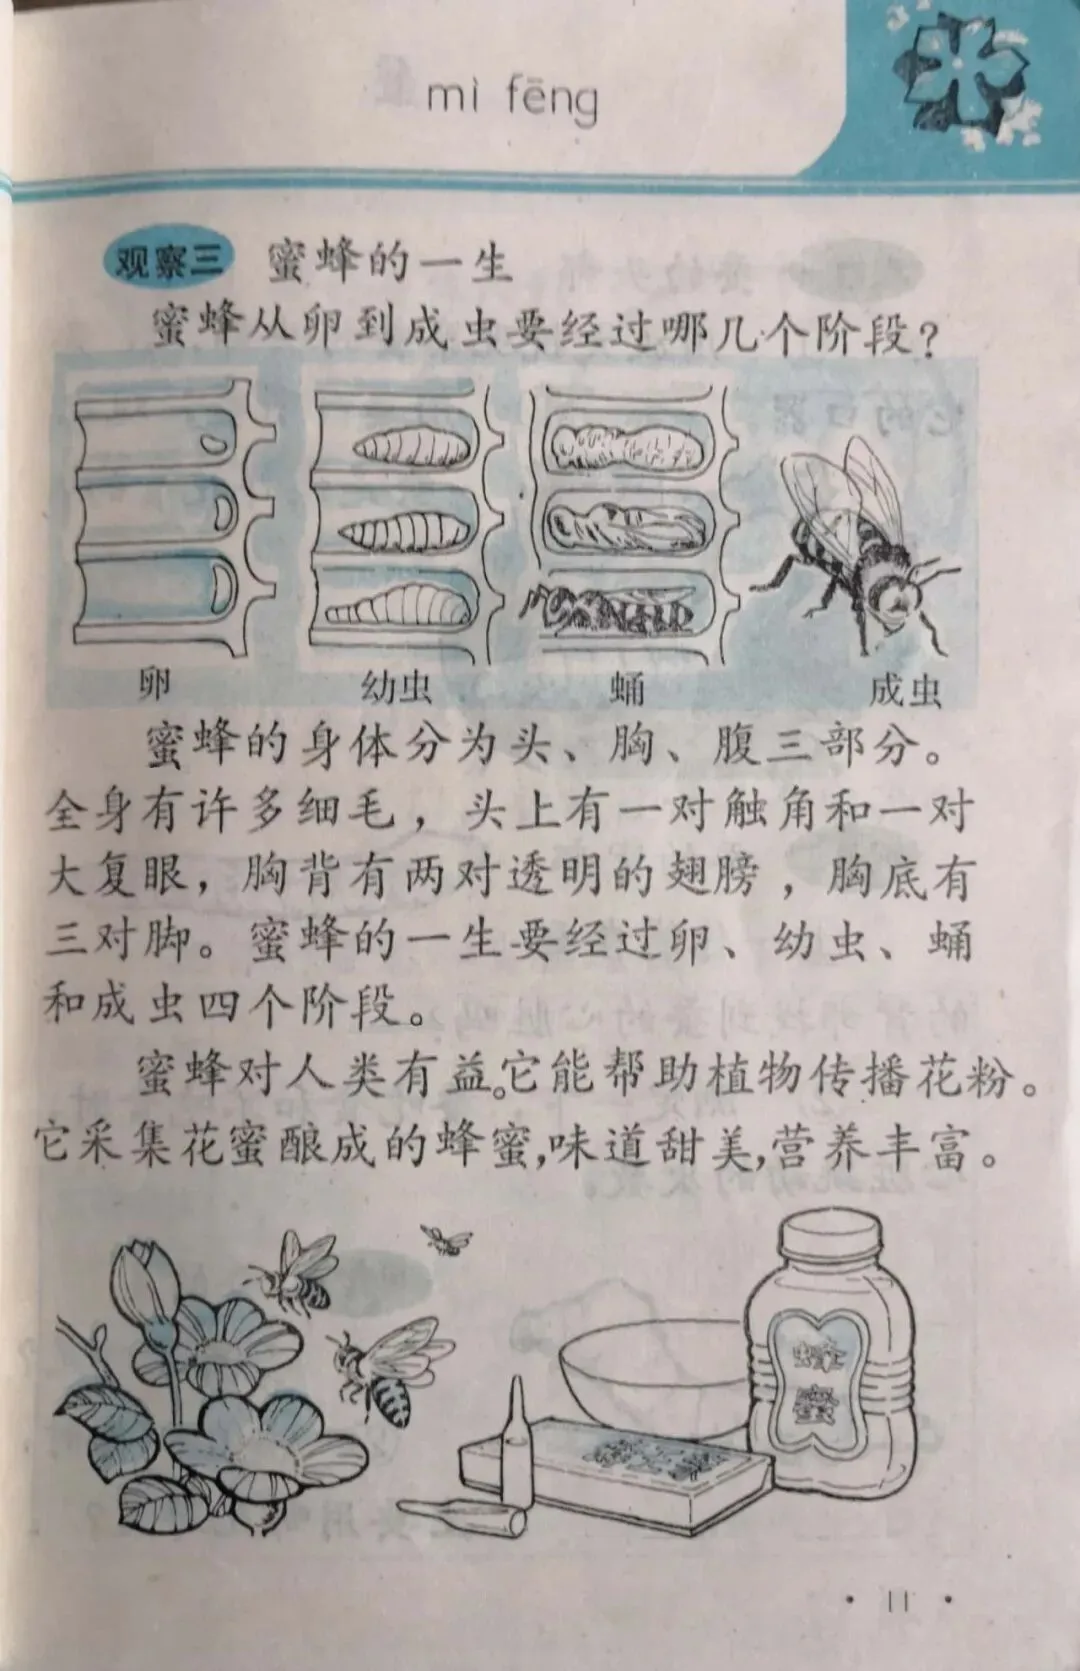 mì fēng
观察三 蜜蜂的一生
蜜蜂从卵到成虫要经过哪几个阶段？
卵 幼虫 蛹 成虫
蜜蜂的身体分为头、胸、腹三部分。
全身有许多细毛，头上有一对触角和一对
大复眼，胸背有两对透明的翅膀，胸底有
三对脚。蜜蜂的一生要经过卵、幼虫、蛹
和成虫四个阶段。
蜜蜂对人类有益。它能帮助植物传播花粉。
它采集花蜜酿成的蜂蜜，味道甜美，营养丰富。
蜂
蜜
· 11 ·